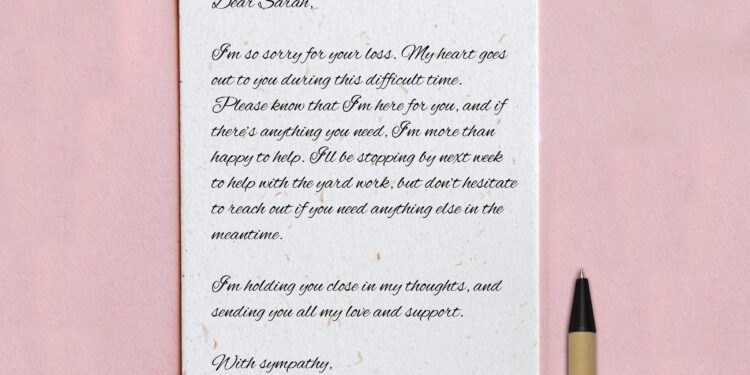 Dear Sarah,
I'm so sorry for your loss. My heart goes
out to you during this difficult time.
Please know that I'm here for you, and if
there's anything you need, I'm more than
happy to help. I'll be stopping by next week
to help with the yard work, but don't hesitate
to reach out if you need anything else in the
meantime.
I'm holding you close in my thoughts, and
sending you all my love and support.
With sympathy,